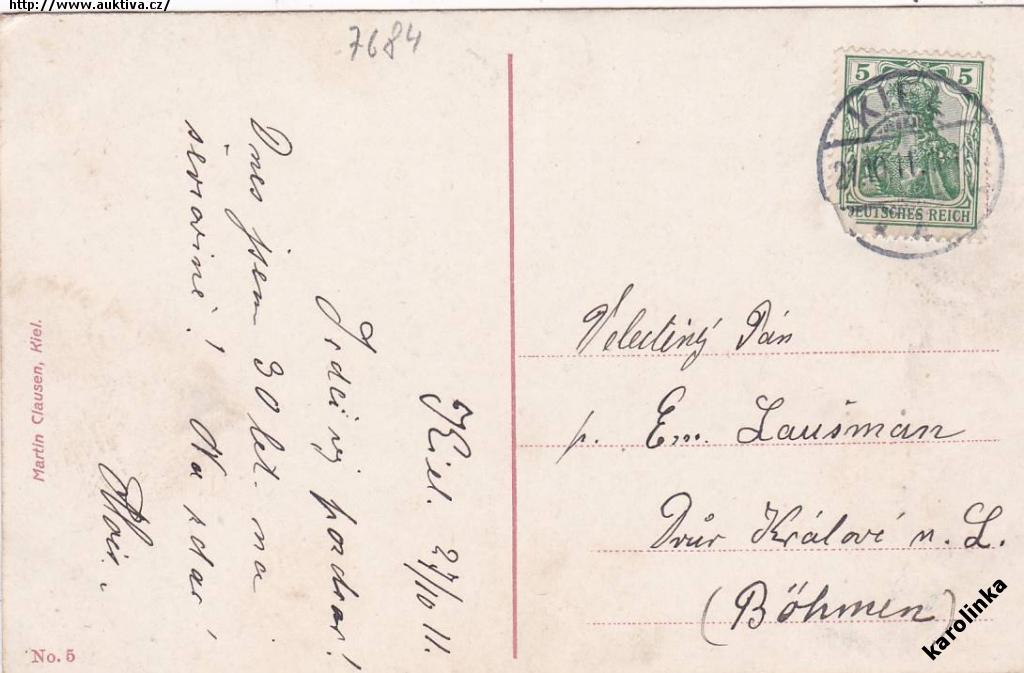 http://www.auktiva.cz/
7684
5 5
KIEL
27.10.11.
DEUTSCHES REICH
Kiel. 27/10 11.
Srdečný pozdrav!
Dnes jsem 30 let. na
severině! Na zdar!
Velectěný Pán
p. Em. Lausman
Dvůr Králové n. L.
(Böhmen)
Martin Clausen, Kiel.
No. 5
karolinka